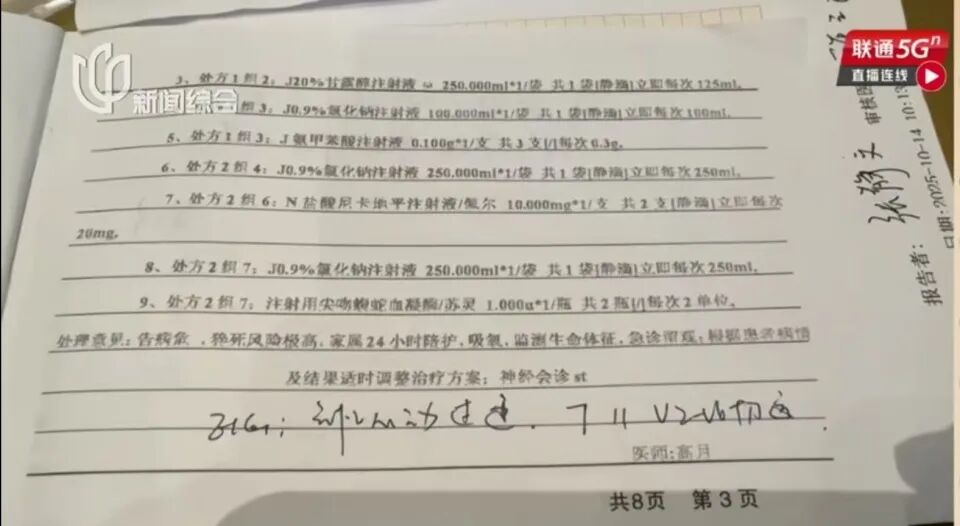 新闻综合
联通5Gⁿ
直播连线
3、处方1组2：J20%甘露醇注射液 ω 250.000ml*1/袋 共1袋[静滴]立即每次125ml。
组3：J0.9%氯化钠注射液 100.000ml*1/袋 共1袋[静滴]立即每次100ml。
5、处方1组3：J氨甲苯酸注射液 0.100g*1/支 共3支[/]每次0.3g。
6、处方2组4：J0.9%氯化钠注射液 250.000ml*1/袋 共1袋[静滴]立即每次250ml。
7、处方2组6：N盐酸尼卡地平注射液/佩尔 10.000mg*1/支 共2支[静滴]立即每次
20mg。
8、处方2组7：J0.9%氯化钠注射液 250.000ml*1/袋 共1袋[静滴]立即每次250ml。
9、处方2组7：注射用尖吻蝮蛇血凝酶/苏灵 1.000u*1/瓶 共2瓶[/]每次2单位。
处理意见：告病危，猝死风险极高，家属24小时陪护，吸氧，监测生命体征，急诊留观；根据患者病情
及结果适时调整治疗方案；神经会诊st
医师：高月
共8页 第3页
报告者：
审核医
日期：2025-10-14 10:13